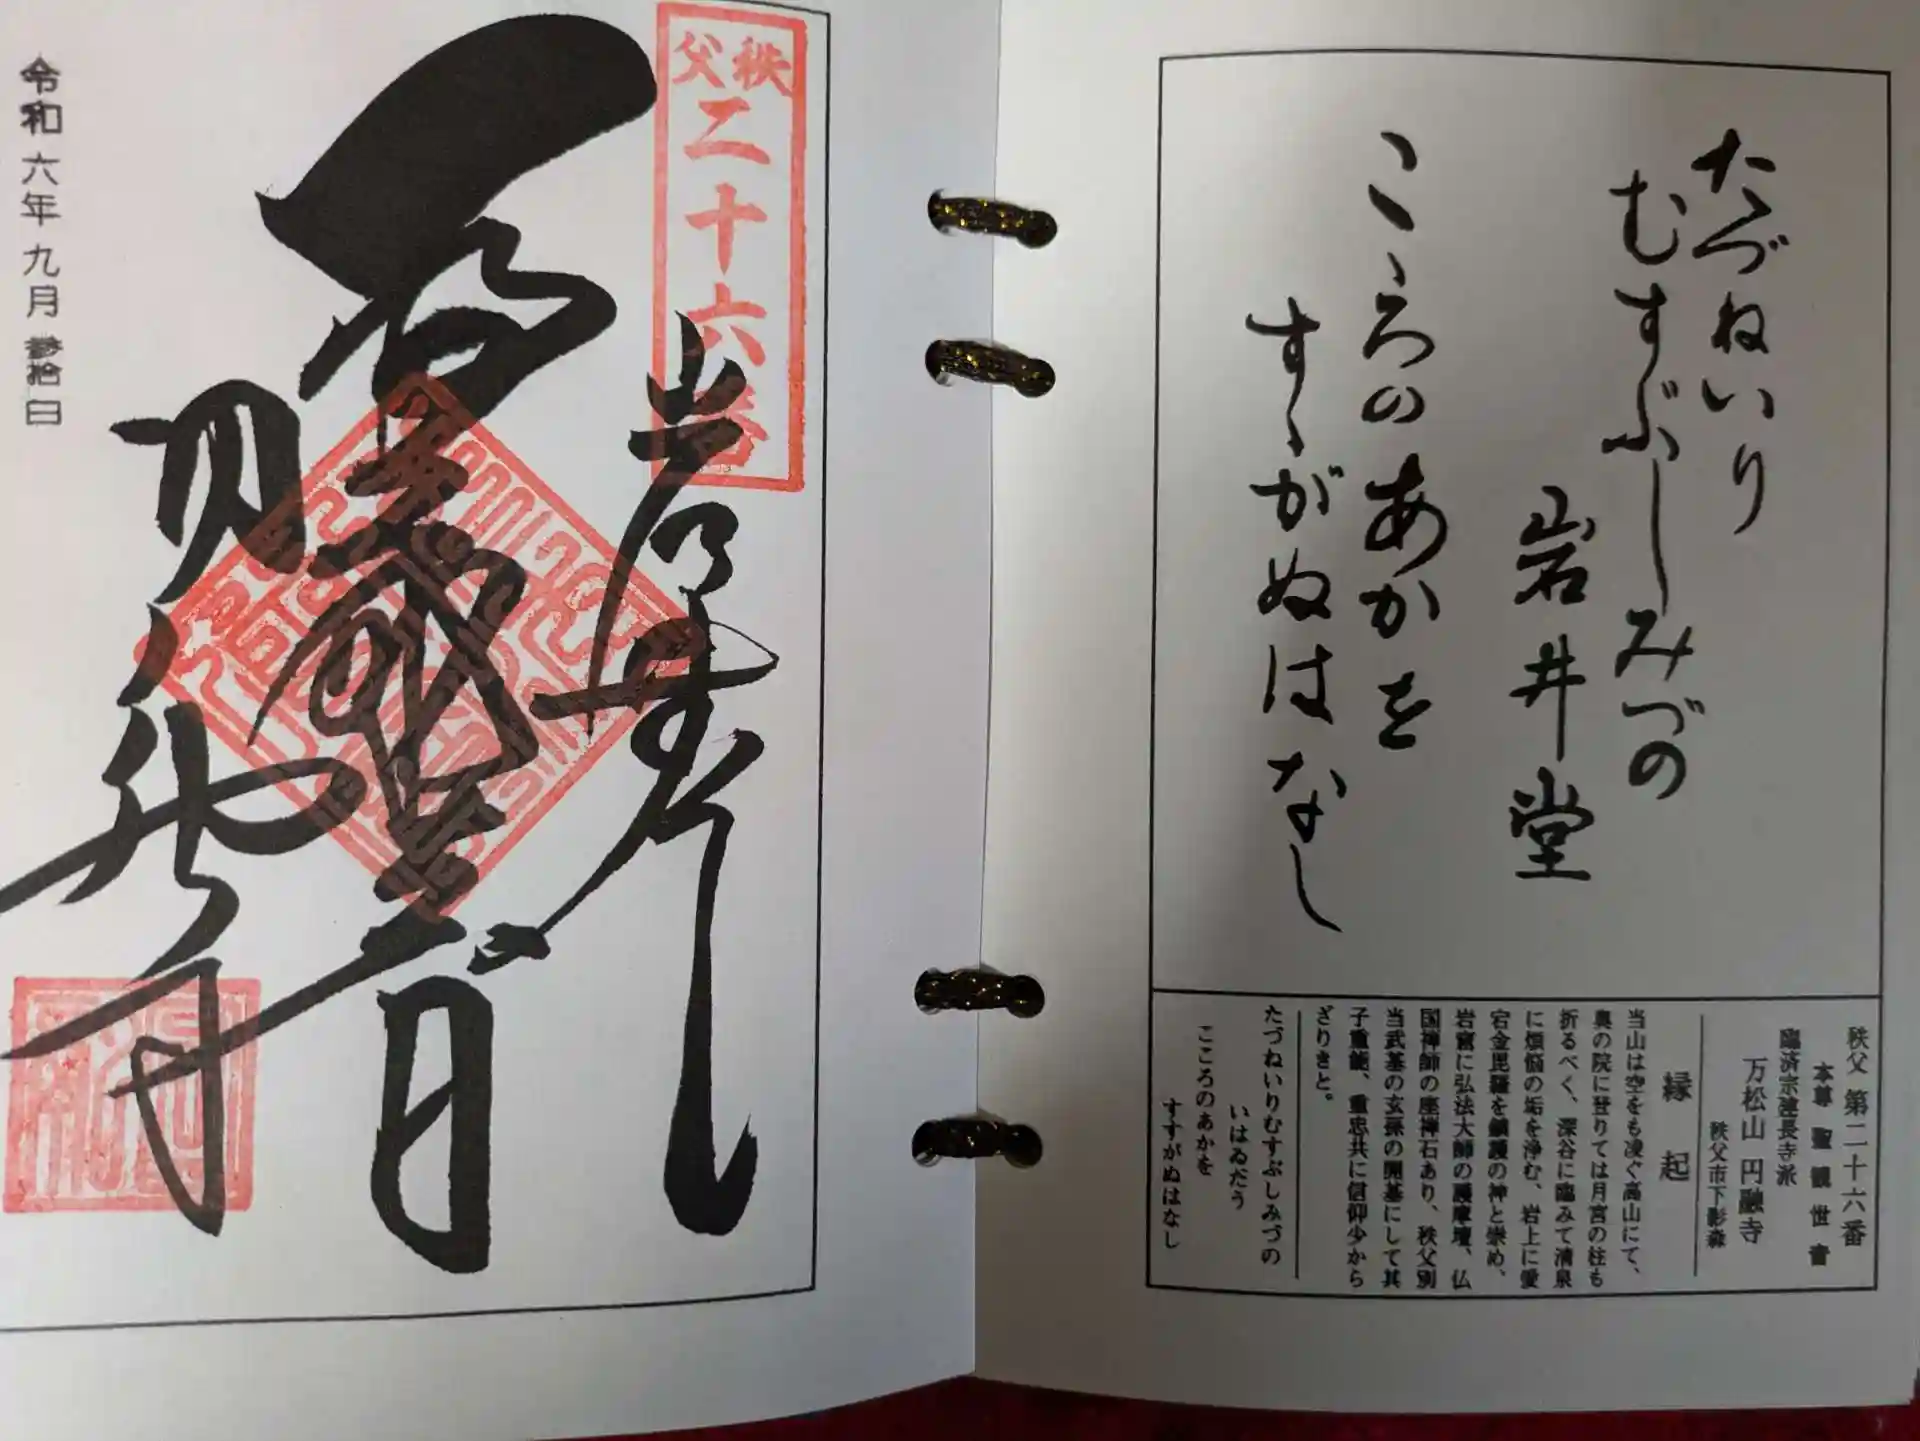 たづねいり
むすぶしみづの
岩井堂
こゝろのあかを
すゝがぬはなし
秩父 第二十六番
本尊 聖観世音
臨済宗建長寺派
万松山 円融寺
秩父市下影森
縁起
当山は空をも凌ぐ高山にて、
奥の院に登りては月宮の柱も
折るべく、深谷に臨みて清泉
に煩悩の垢を浄む、岩上に愛
宕金毘羅を鎮護の神と崇め、
岩窟に弘法大師の護摩壇、仏
国禅師の座禅石あり、秩父別
当武基の玄孫の開基にして其
子重能、重忠共に信仰少から
ざりきと。
たづねいりむすぶしみづの
いはゐだう
こころのあかを
すすがぬはなし
秩父
二十六番
岩井堂
令和六年九月参拾日